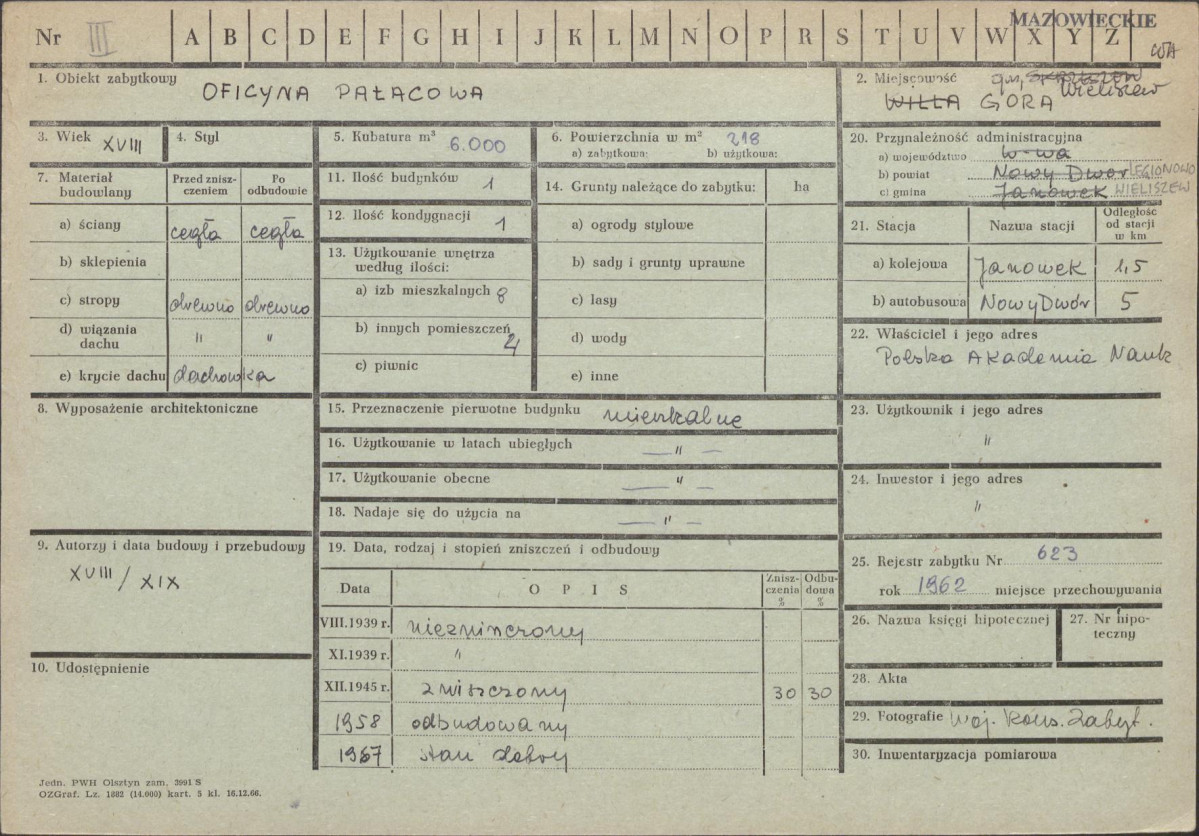 MAZOWIECKIE
Nr III A B C D E F G H I J K L M N O P R S T U V W X Y Z
WA
1. Obiekt zabytkowy
OFICYNA PAŁACOWA
2. Miejscowość gm. Wieliszew
WILLA GORA
3. Wiek XVIII
4. Styl
5. Kubatura m³ 6.000
6. Powierzchnia w m² 218
a) zabytkowa: b) użytkowa:
7. Materiał budowlany
Przed zniszczeniem
Po odbudowie
a) ściany cegła cegła
b) sklepienia
c) stropy drewno drewno
d) wiązania dachu " "
e) krycie dachu dachowka
8. Wyposażenie architektoniczne
9. Autorzy i data budowy i przebudowy
XVIII / XIX
10. Udostępnienie
11. Ilość budynków 1
12. Ilość kondygnacji 1
13. Użytkowanie wnętrza według ilości:
a) izb mieszkalnych 8
b) innych pomieszczeń 4
c) piwnic
14. Grunty należące do zabytku: ha
a) ogrody stylowe
b) sady i grunty uprawne
c) lasy
d) wody
e) inne
15. Przeznaczenie pierwotne budynku mieszkalne
16. Użytkowanie w latach ubiegłych — " —
17. Użytkowanie obecne — " —
18. Nadaje się do użycia na — " —
19. Data, rodzaj i stopień zniszczeń i odbudowy
Data OPIS Zniszczenia % Odbudowa %
VIII.1939 r. niezniszczony
XI.1939 r. "
XII.1945 r. zniszczony 30 30
1958 odbudowany
1967 stan dobry
20. Przynależność administracyjna
a) województwo W-wa
b) powiat Nowy Dwór LEGIONOWO
c) gmina Janowek WIELISZEW
21. Stacja Nazwa stacji Odległość od stacji w km
a) kolejowa Janowek 1,5
b) autobusowa Nowy Dwór 5
22. Właściciel i jego adres
Polska Akademia Nauk
23. Użytkownik i jego adres
"
24. Inwestor i jego adres
"
25. Rejestr zabytku Nr 623
rok 1962 miejsce przechowywania
26. Nazwa księgi hipotecznej
27. Nr hipoteczny
28. Akta
29. Fotografie Woj. Kons. Zabyt.
30. Inwentaryzacja pomiarowa
Jedn. PWH Olsztyn zam. 3991 S
OZGraf. Lz. 1882 (14.000) kart. 5 kl. 16.12.66.